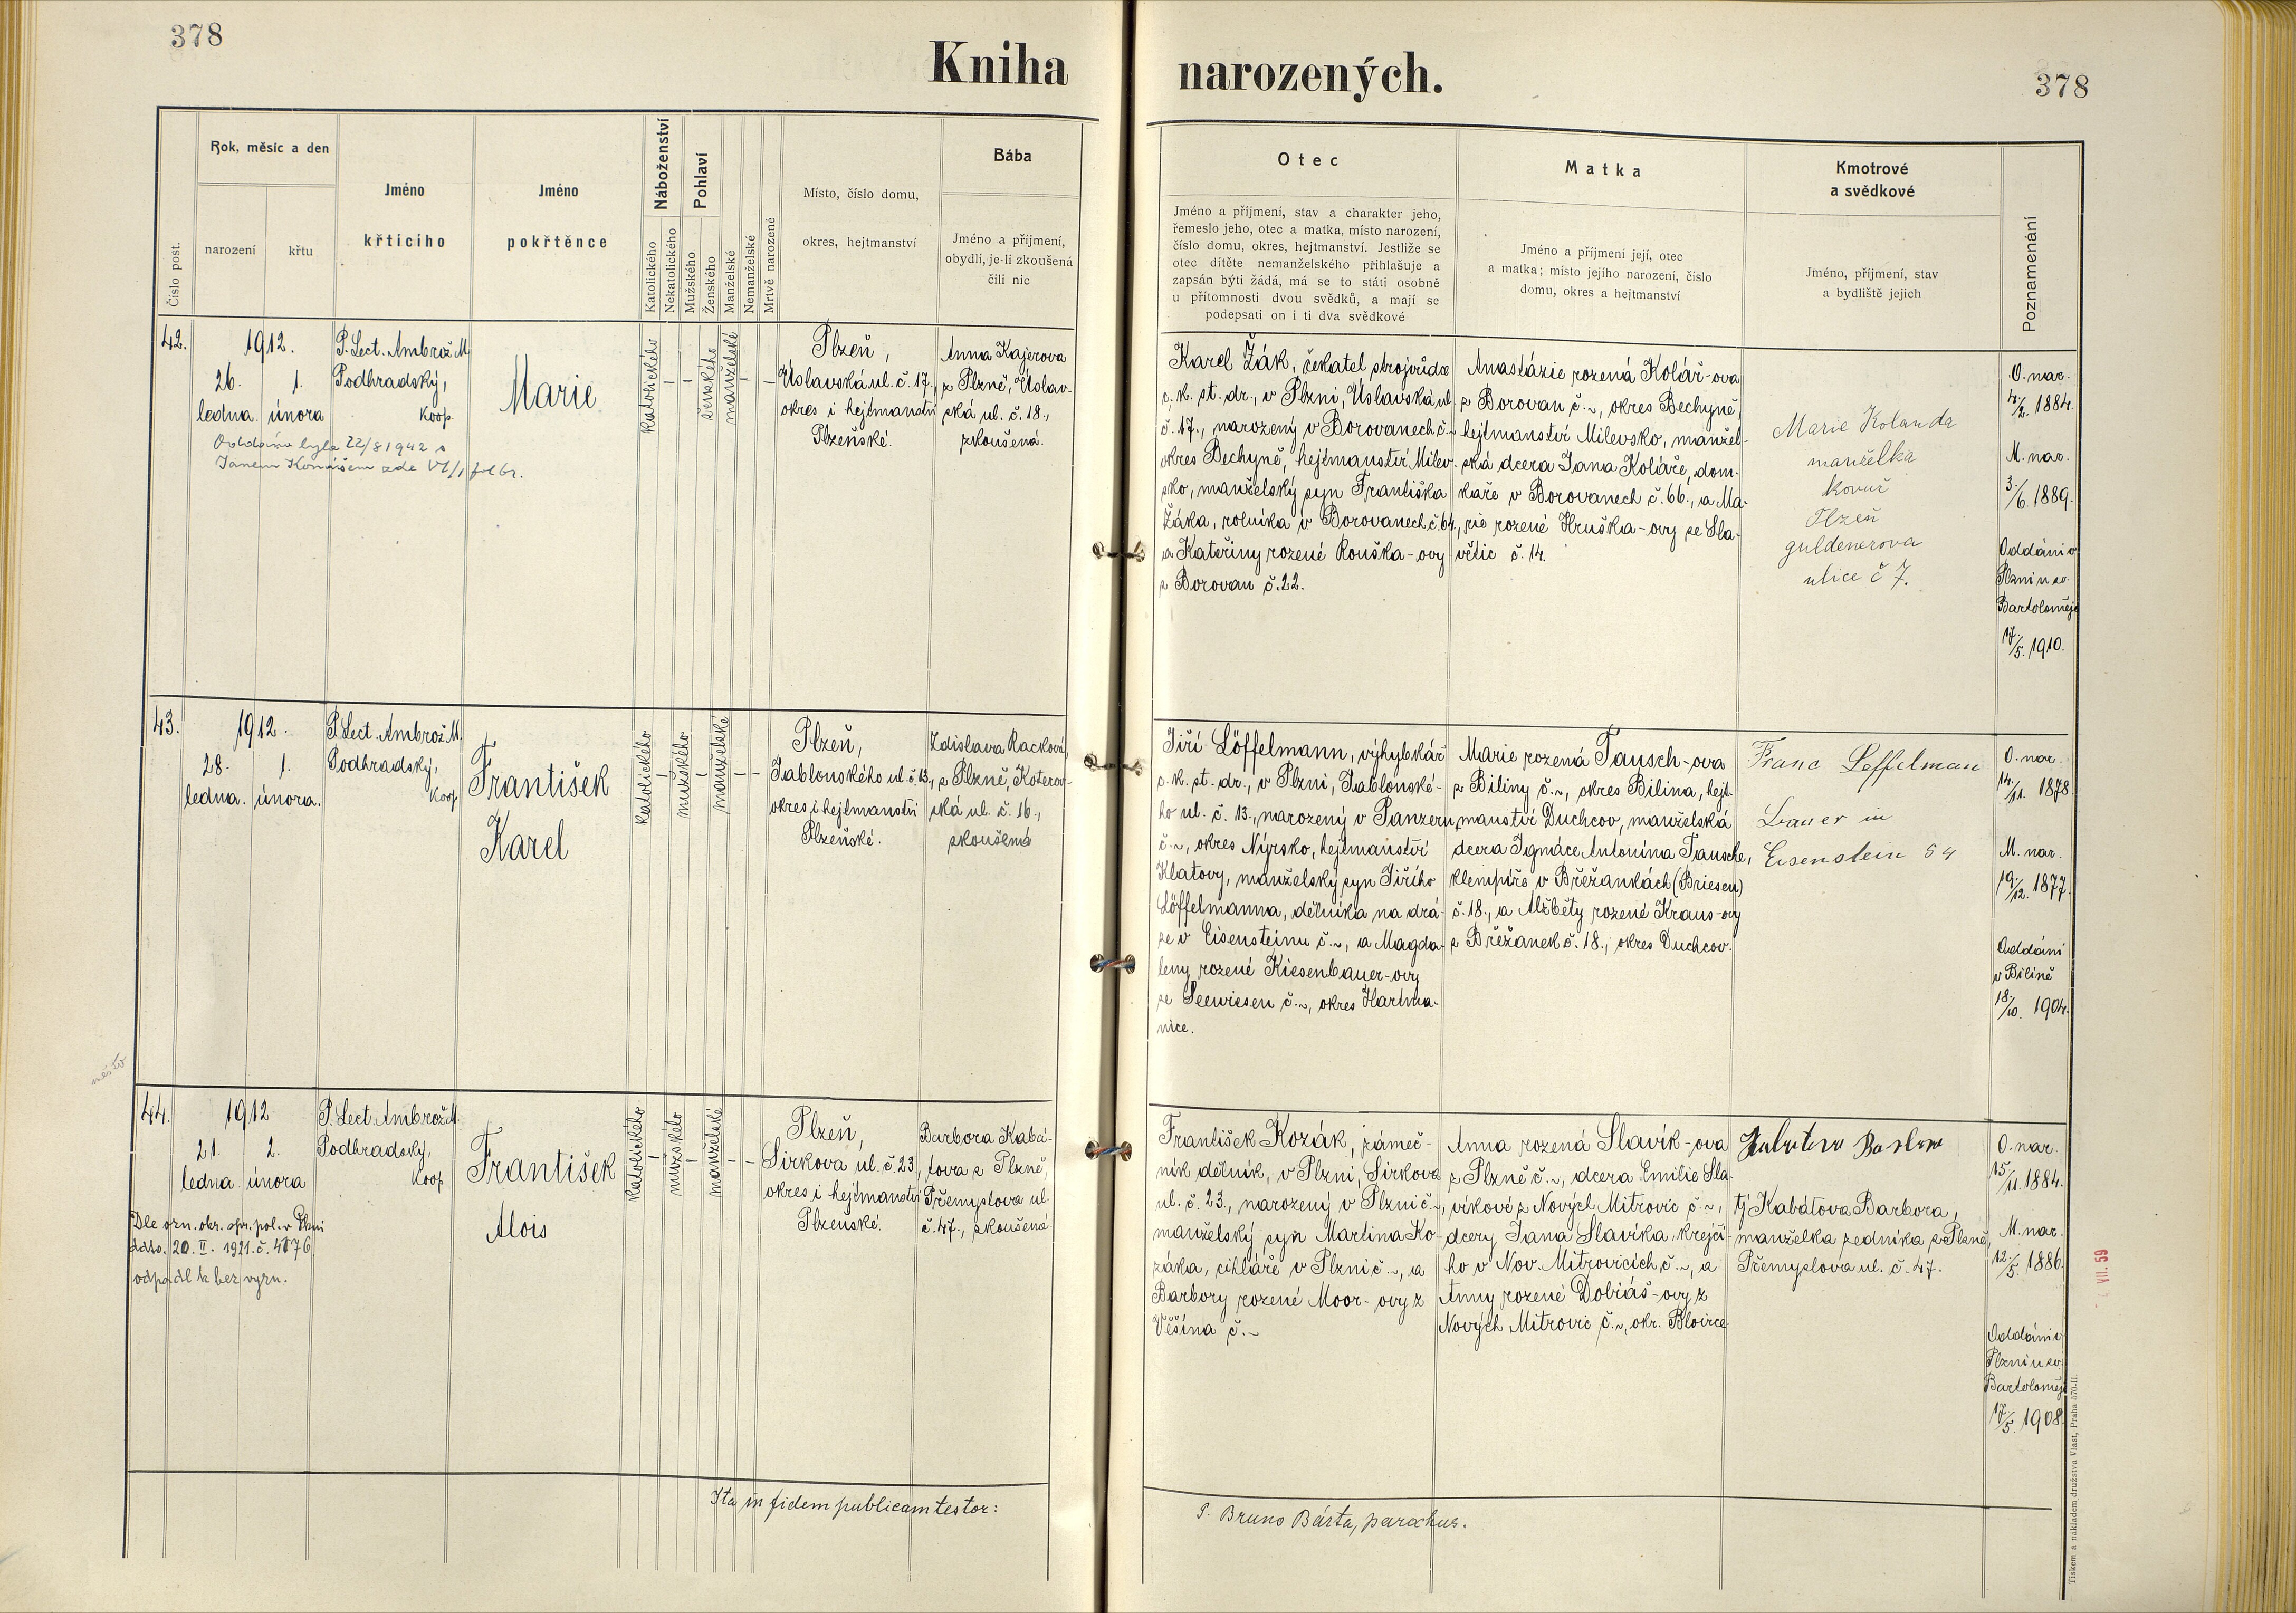 378
Kniha narozených.
378
Číslo post.
Rok, měsíc a den
narození
křtu
Jméno
křticího
Jméno
pokřtěnce
Náboženství
Katolického
Nekatolického
Pohlaví
Mužského
Ženského
Manželské
Nemanželské
Mrtvě narozené
Místo, číslo domu,
okres, hejtmanství
Bába
Jméno a příjmení,
obydlí, je-li zkoušená
čili nic
Otec
Jméno a příjmení, stav a charakter jeho,
řemeslo jeho, otec a matka, místo narození,
číslo domu, okres, hejtmanství. Jestliže se
otec dítěte nemanželského přihlašuje a
zapsán býti žádá, má se to státi osobně
u přítomnosti dvou svědků, a mají se
podepsati on i ti dva svědkové
Matka
Jméno a příjmení její, otec
a matka; místo jejího narození, číslo
domu, okres a hejtmanství
Kmotrové
a svědkové
Jméno, příjmení, stav
a bydliště jejich
Poznamenání
42.
1912.
26.
ledna.
1.
února
P. Lect. Ambrož M.
Podhradský,
koop.
Marie
katolického
ženského
manželské
Plzeň,
Úslavská ul. č. 17.,
okres i hejtmanství
Plzeňské.
Anna Kajerova
z Plzně, Úslav-
ská ul. č. 18.,
zkoušena.
Oddána byla 22/8 1942 s
Janem
zde VI/1
Karel Žák, čekatel strojvůdce
c. k. st. dr., v Plzni, Úslavská ul.
č. 17., narozený v Borovanech č. ~
okres Bechyně, hejtmanství Milev-
sko, manželský syn Františka
Žáka, rolníka v Borovanech č. 64.,
a Kateřiny rozené Rouška-ovy
z Borovan č. 22.
Anastázie rozená Kolář-ova
z Borovan č. ~, okres Bechyně,
hejtmanství Milevsko, manžel-
ská dcera Jana Koláře, dom-
kaře v Borovanech č. 66., a Ma-
rie rozené Hruška-ovy ze Sla-
větic č. 14.
Marie Kolanda
manželka
Plzeň
guldenerova
ulice č 7.
O. nar.
4/2. 1884.
M. nar.
3./6. 1889.
Oddáni v
Plzni u sv.
Bartoloměje
17./5. 1910.
43.
1912.
28.
ledna.
1.
února.
P. Lect. Ambrož M.
Podhradský,
koop.
František
Karel
katolického
mužského
manželské
Plzeň,
Jablonského ul. č. 13.,
okres i hejtmanství
Plzeňské.
Zdislava Racková,
z Plzně, Koterov-
ská ul. č. 16.,
zkoušená
Jiří Löffelmann, výhybkář
c. k. st. dr., v Plzni, Jablonské-
ho ul. č. 13., narozený v Panzern
č. ~, okres Nýrsko, hejtmanství
Klatovy, manželský syn Jiřího
Löffelmanna, dělníka na drá-
ze v Eisensteinu č. ~, a Magda-
leny rozené Kiesenbauer-ovy
ze Seewiesen č. ~, okres Hartma-
nice.
Marie rozená Tausch-ova
z Biliny č. ~, okres Bilina, hejt-
manství Duchcov, manželská
dcera Ignáce Antonína Tausche,
klempíře v Břežankách (Briesen)
č. 18., a Alžběty rozené Kraus-ovy
z Břežanek č. 18., okres Duchcov.
Franc Leffelman
Bauer in
Eisenstein 54
O. nar.
14./11. 1878.
M. nar.
19./12. 1877.
Oddáni
v Bilině
18./10. 1904.
město
44.
1912
21.
ledna.
2.
února
P. Lect. Ambrož M.
Podhradský,
koop
František
Alois
katolického.
mužského
manželské
Plzeň,
Sirkova ul. č. 23.,
okres i hejtmanství
Plzeňské.
Barbora Kabá-
tova z Plzně,
Přemyslova ul.
č. 47., zkoušená.
Dle ozn. okr. spr. pol. v Plzni
ddto. 20. II. 1921. č. 4176
odpadl k bez vyzn.
František Kozák, zámeč-
ník dělník, v Plzni, Sirkova
ul. č. 23., narozený v Plzni č. ~,
manželský syn Martina Ko-
záka, cihláře v Plzni č. ~, a
Barbory rozené Moor-ovy z
Věšína č. ~
Anna rozená Slavík-ova
z Plzně č. ~, dcera Emilie Sla-
víkové z Nových Mitrovic č. ~,
dcery Jana Slavíka, krejčí-
ho v Nov. Mitrovicích č. ~, a
Anny rozené Dobiáš-ovy z
Nových Mitrovic č. ~, okr. Blovice.
tj Kabátova Barbora,
manželka zedníka z Plzně,
Přemyslova ul. č. 47.
O. nar.
15./11. 1884.
M. nar.
12./5. 1886.
Oddáni v
Plzni u sv.
Bartoloměje
17./5. 1908.
VII. 59
Ita in fidem publicam testor:
P. Bruno Bárta, parochus.
Tiskem a nákladem družstva Vlast, Praha 570-II.